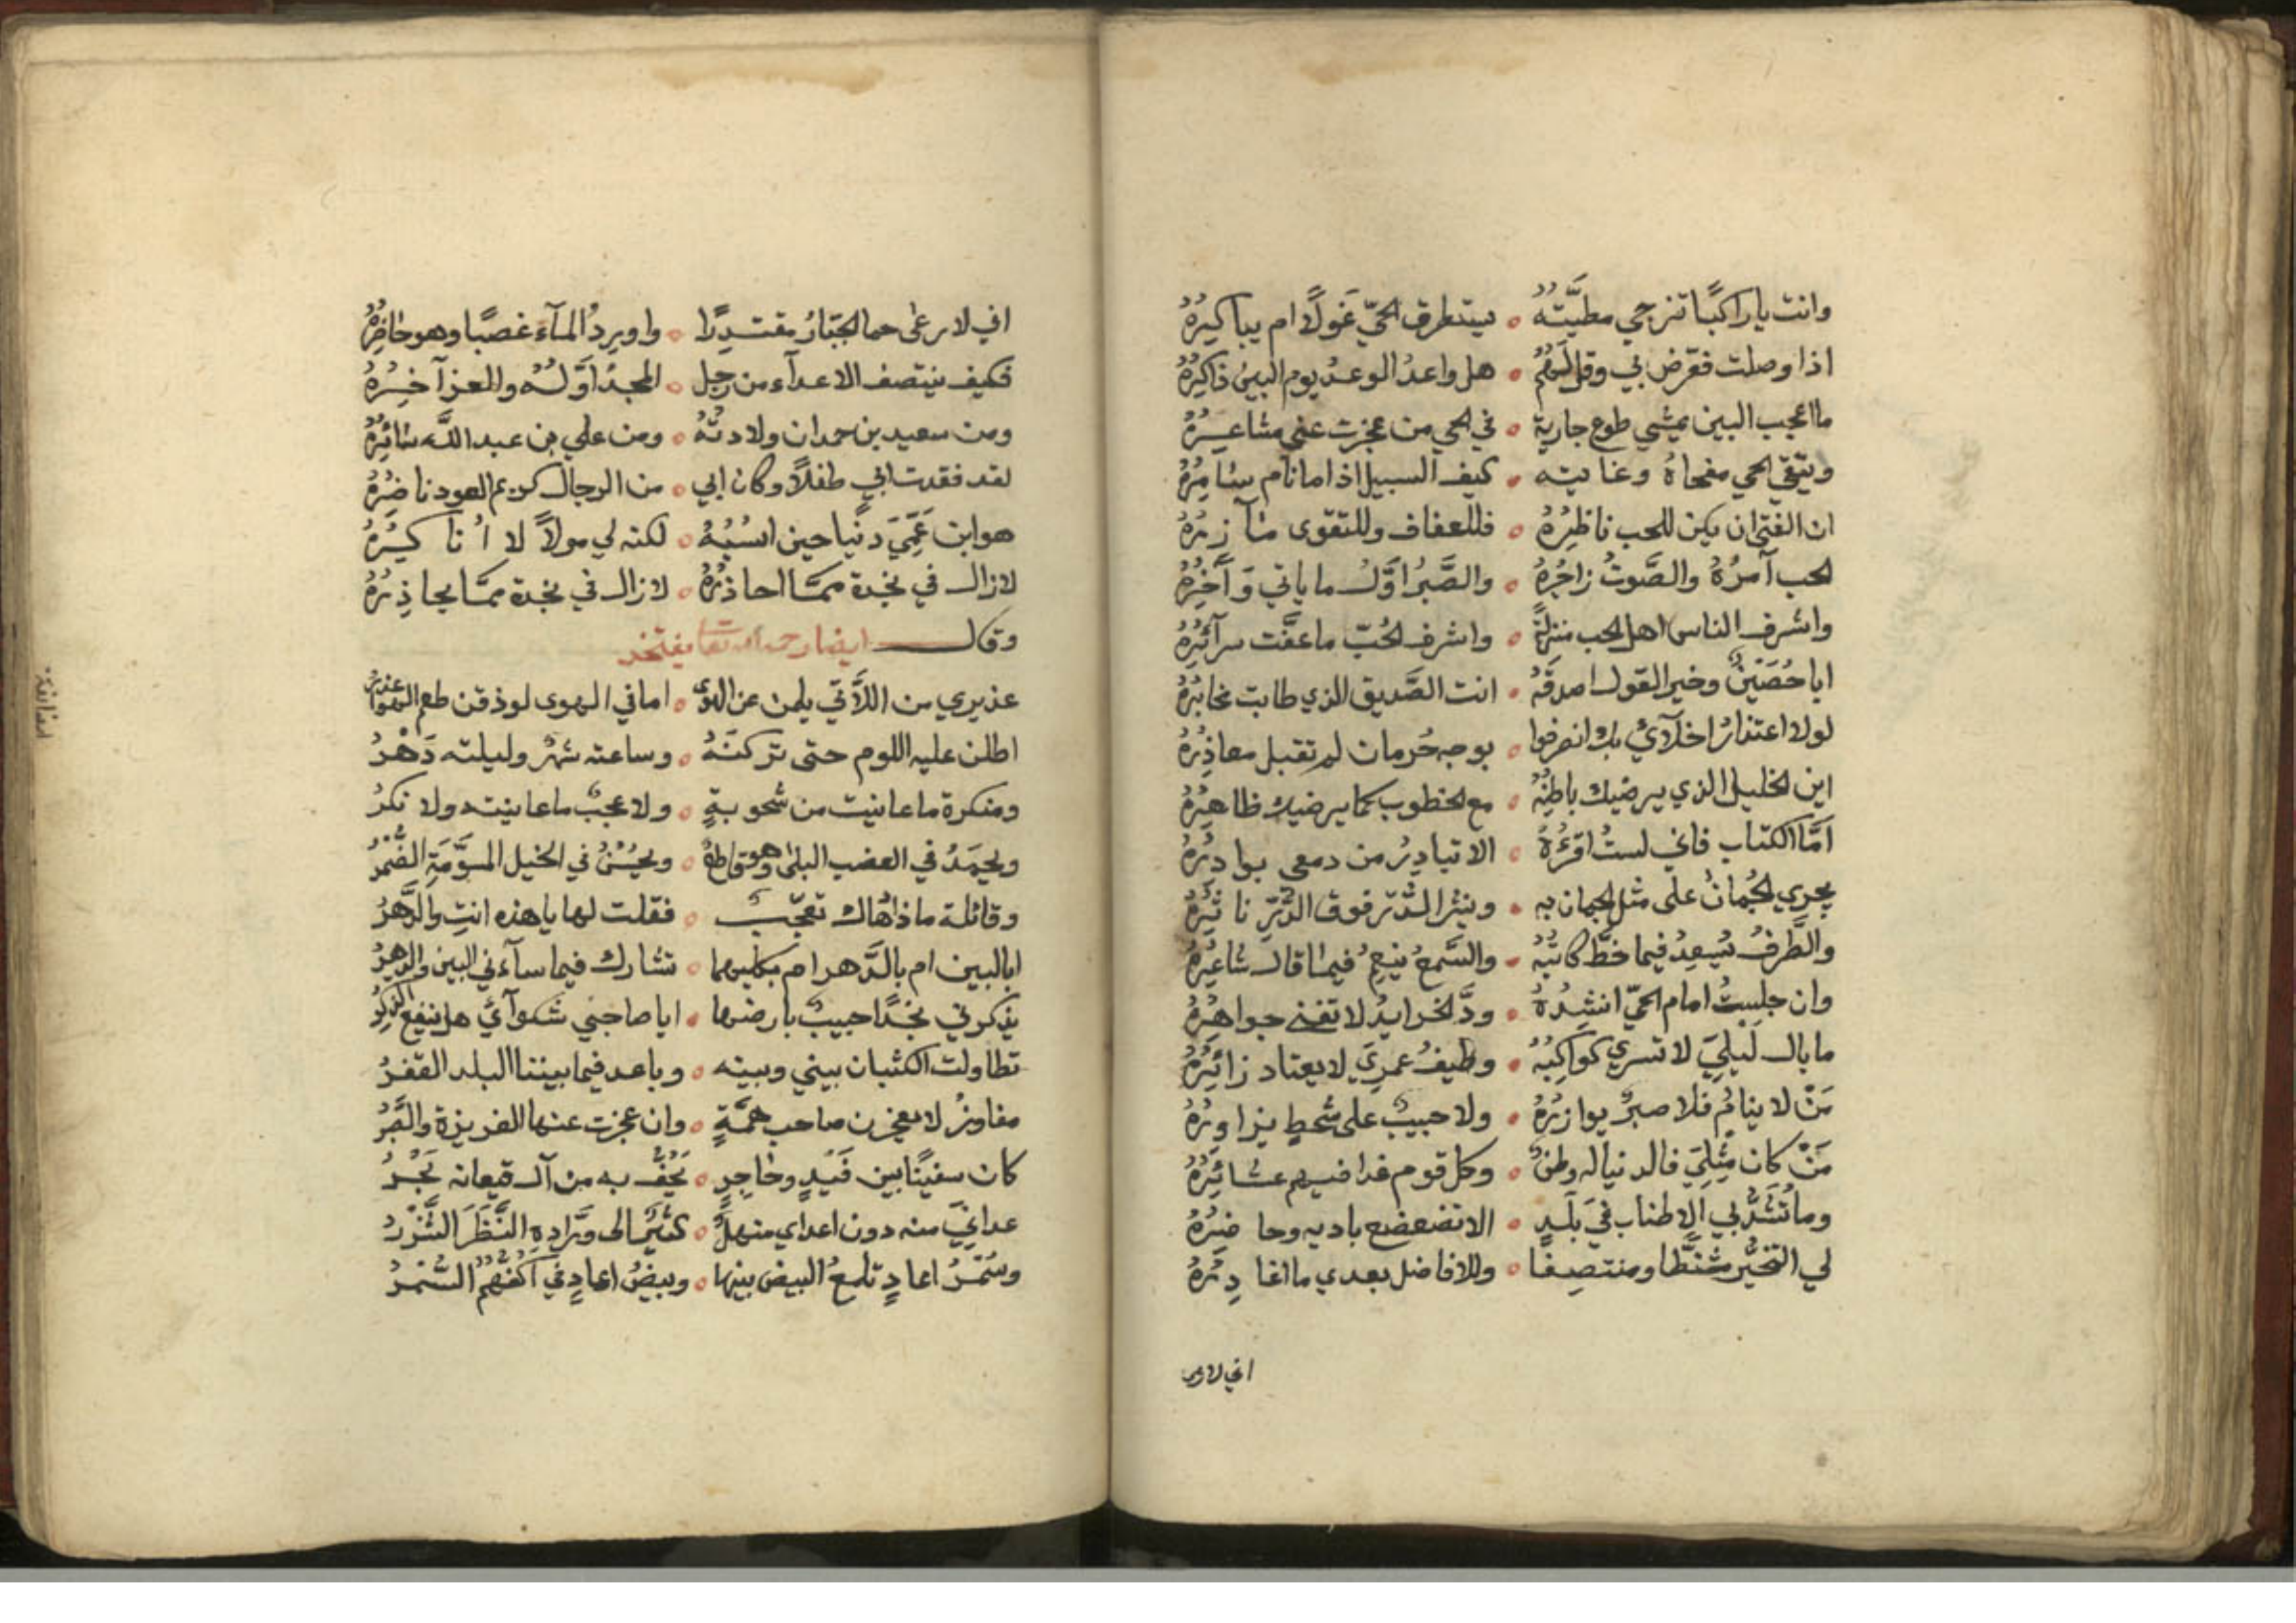 وانت يا راكبًا تنزجي مطيَّتُه ∘ يستطرق الحيّ غَولًا ام يباكيرُهُ
اذا وصلت فعرض بي وقل لَهُمُ ∘ هل واعدُ الوعدُ يوم البين ذاكِرُهُ
ما اعجب البين يمشي طوع جارية ∘ في الحي من عجزت عني مشاعــرُهُ
ويتقي الحي مفجاهُ وغايته ∘ كيف السبيل اذا ما نام سامِرُهُ
ان الفتى ان يكن للحب ناظِرُهُ ∘ فللعفاف وللتقوى مآزرُهُ
الحب آمرُهُ والصَّوتُ زاجُرُهُ ∘ والصَّبُرا وَّلـُ ما ياتي وَآخِرُهُ
واشرفــ الناس اهل الحب منزلةً ∘ واشرفــ الحُبّ ما عفَّت سرآئرُهُ
ابا حُصَيْنٍ وخير القولــ اصدقُهُ ∘ انت الصَّديق الذي طابت مخابرُهُ
لولا اعتذارُ اخلّآئي بك انصرفوا ∘ بوجه حُرمان لم تقبل معاذِرُهُ
اين الخليل الذي يرضيك باطِنُهُ ∘ مع الخطوب كما يرضيك ظاهِرُهُ
اَمَّا الكتاب فاني لستُ اقرَءُهُ ∘ الا تبادِرُ من دمعى بوادرُهُ
يجري الجُمانُ على مثل الجمان به ∘ وينثر الدُّرّ فوق الدُّرِّ ناثِرُهُ
والطَّرفُ يُسعِدُ فيما خطَّ كاتبُهُ ∘ والسَّمعُ ينعِمُ فيما قالــ شاعِرُهُ
وان جلستُ امام الحيّ انشِدُهُ ∘ ودَّ الخرايدُ لا تفنى جواهِرُهُ
ما بالــ لَيلِيَ لا تسري كواكِبُهُ ∘ وطيفُ عمرِيَ لا يعتاد زائِرُهُ
مَنْ لا ينامُ فلا صبرٌ يوازرُهُ ∘ ولا حبيبٌ على شحطٍ يزاورُهُ
مَنْ كان مِثِليَ فالدنيا له وطنٌ ∘ وكل قوم غدا فيهم عشائِرُهُ
وما تُشَدُّ بي الاطناب في بَلَدٍ ∘ الا تضعضع باديه وحاضِرُهُ
لي التخيُّر مُشتَطًّا ومنتصِفًا ∘ وللافاضل بعدي ما اغادِرُهُ
اني لارعى
اني لا رعى حما الجبّارُ مقتدِرًا ∘ واوِردُ المآء غصبًا وهو حاضِرُهُ
فكيف ينتصف الاعدآء من رجل ∘ المجدُ اوَّلــُهُ والعز آخِــرُهُ
ومن سعيد بن حمدان ولادتُهُ ∘ ومن علي بن عبد اللّه سائِرُهُ
لقد فقدت ابي طفلًا وكان ابي ∘ من الرجالــ كريم العود ناضِرُهُ
هو ابن عَمِّيَ دنيا حين انسُبُهُ ∘ لكنه لي مولًا لا اُناكِرُهُ
لا زالــ في نجدة ممَّا احاذرُهُ ∘ لا زالــ في نجدة ممَّا يحاذِرُهُ
وقالــ ايضا رحمه الله تعا يفتخر
عذيري من اللَّاتي يلمن عن الهوى ∘ اما في الهوى لو ذقن طعم الهوى عذرُ
اطلن عليه اللوم حتى تركنَهُ ∘ وساعته شهرٌ وليلته دَهْرُ
ومنكرة ما عاينت من شحوبةٍ ∘ ولا عجبٌ ما عاينته ولا نكرُ
ويحمَدُ في العضب البلى وهو قاطعٌ ∘ ويحسُنُ في الخيل المسوَّمَةِ الضُّمْرُ
وقائلة ماذا دُهاك تعجّبــ ∘ فقلت لها يا هذه انتِ والدَّهرُ
ابالبين ام بالدَّهر ام بكليهما ∘ تشارك فيما سآءني البين والدهرُ
يذكرني نجدًا حبيبٌ بارضها ∘ ايا صاحبي شكوآئي هل ينفع الذِّكرُ
تطاولت الكثبان بيني وبينه ∘ وباعد فيما بيننا البلد القفرُ
مفاوزُ لا يعجزن صاحب همَّةٍ ∘ وان عجزت عنها الغريزة والصَّبرُ
كان سفينًا بين فَيدٍ وحاجِرٍ ∘ يَحُفُّ به من آلــ قيعانه بَحْرُ
عدانِيَ منه دون اعداي منهلٌ ∘ كثيرٌ الى ورَّادِهِ النَّظَرَ الشَّزْرُ
وسُمْرُ اعادٍ تلمعُ البيض بينها ∘ وبيضُ اعادٍ في اكفّهُمُ السُّمْرُ